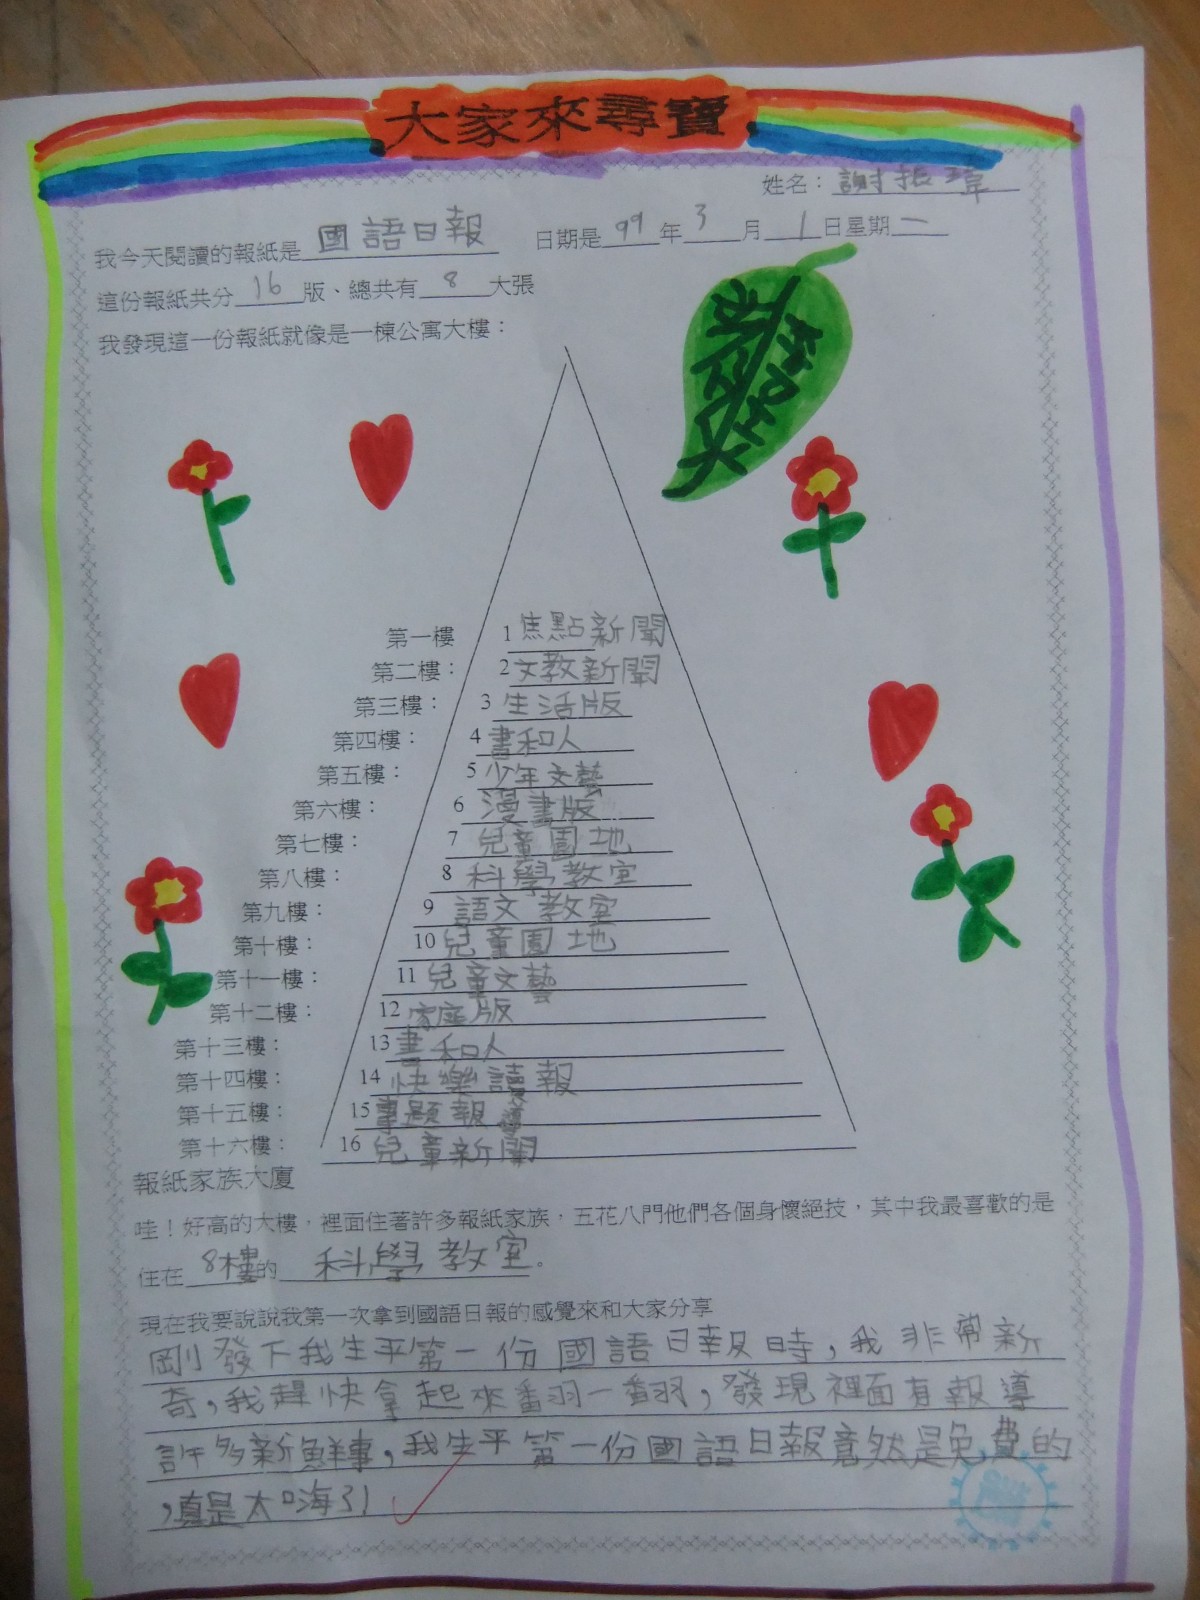 大家來尋寶
姓名：謝振瑋
我今天閱讀的報紙是國語日報 日期是99年3月1日星期二
這份報紙共分16版、總共有8大張
我發現這一份報紙就像是一棟公寓大樓：
第一樓 1 焦點新聞
第二樓： 2 文教新聞
第三樓： 3 生活版
第四樓： 4 書和人
第五樓： 5 少年文藝
第六樓： 6 漫畫版
第七樓： 7 兒童園地
第八樓： 8 科學教室
第九樓： 9 語文教室
第十樓： 10 兒童園地
第十一樓： 11 兒童文藝
第十二樓： 12 家庭版
第十三樓： 13 書和人
第十四樓： 14 快樂讀報
第十五樓： 15 題報導
第十六樓： 16 兒童新聞
報紙家族大廈
哇！好高的大樓，裡面住著許多報紙家族，五花八門他們各個身懷絕技，其中我最喜歡的是
住在8樓的科學教室。
現在我要說說我第一次拿到國語日報的感覺來和大家分享
剛發下我生平第一份國語日報時，我非常新
奇，我趕快拿起來翻一翻，發現裡面有報導
許多新鮮事，我生平第一份國語日報竟然是免費的
，真是太嗨了！